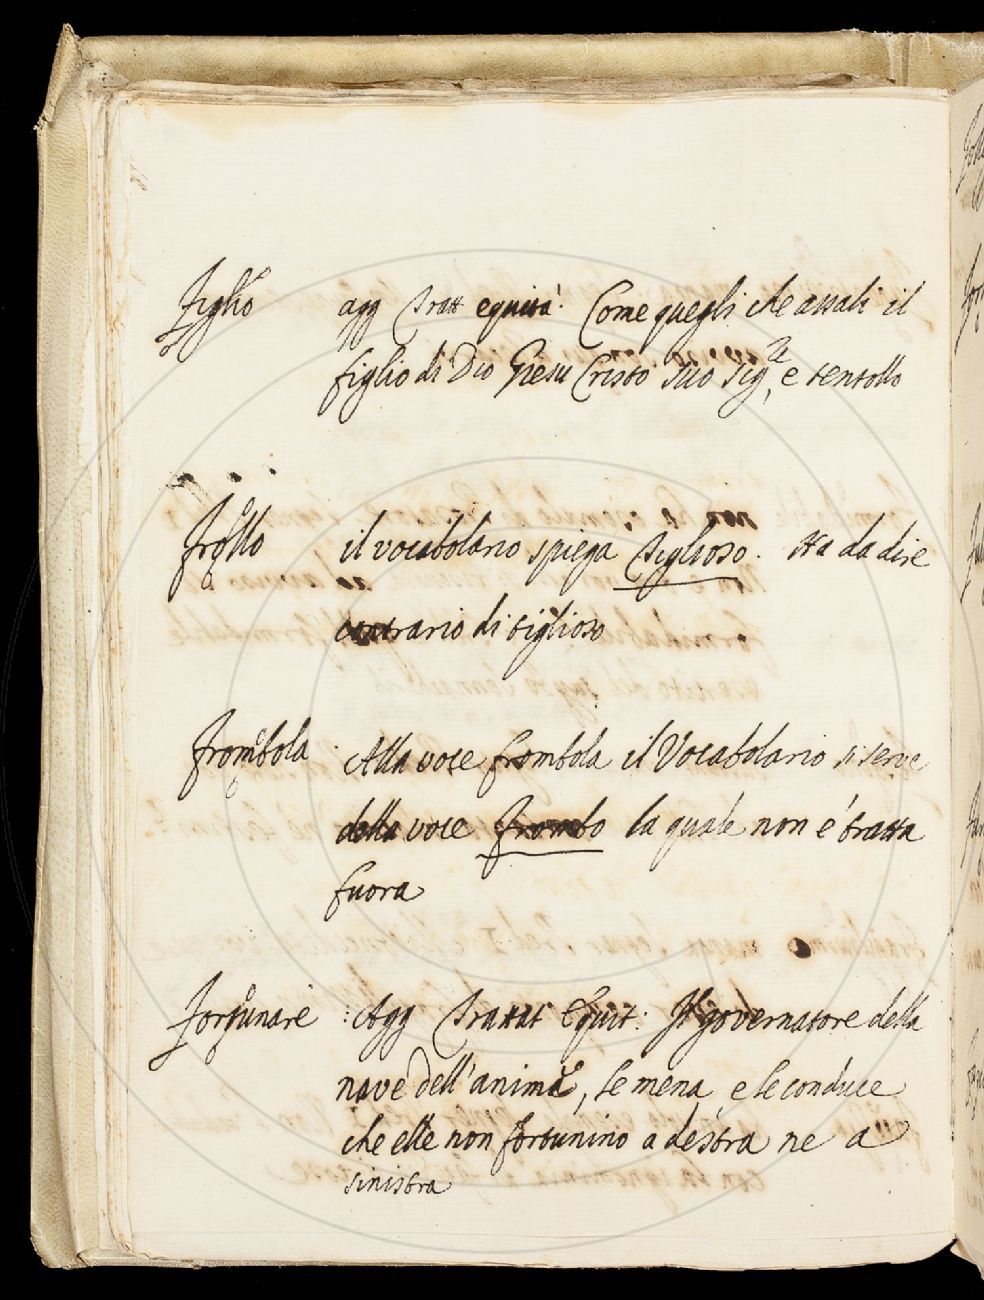 Figlio agg Tratt equità: Come quegli che assalì il
figlio di Dio Giesu Cristo suo Sig.re, e tentollo
Frollo il vocabolario spiega tiglioso. sta da dire
contrario di tiglioso
Frombola. Alla voce frombola il Vocabolario si serve
della voce frombo la quale non è tratta
fuora
Fortunare: Agg Trattat Equit: Il governatore della
nave dell'anima, le mena, e le conduce
che elle non fortunino a destra ne a
sinistra